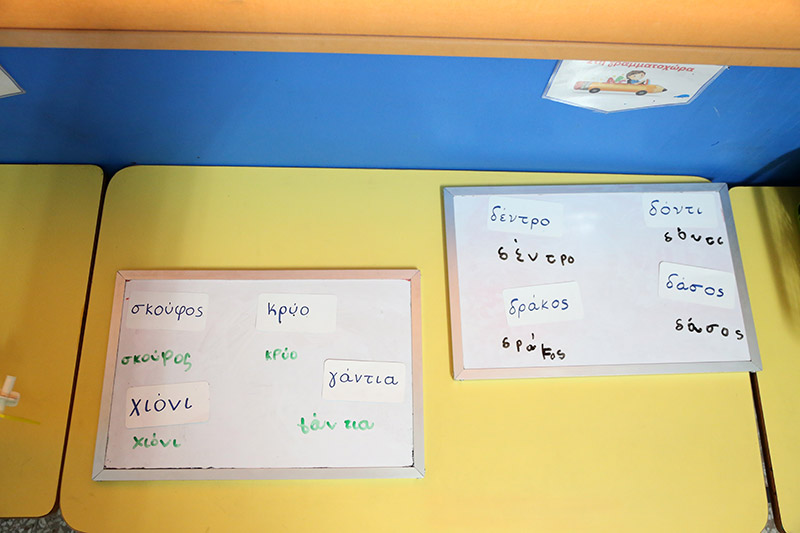 γραμματοχώρα
σκούφος
κρύο
σκούφος
κρύο
γάντια
χιόνι
γάντια
χιόνι
δέντρο
δόντι
δέντρο
δόντι
δράκος
δάσος
δράκος
δάσος